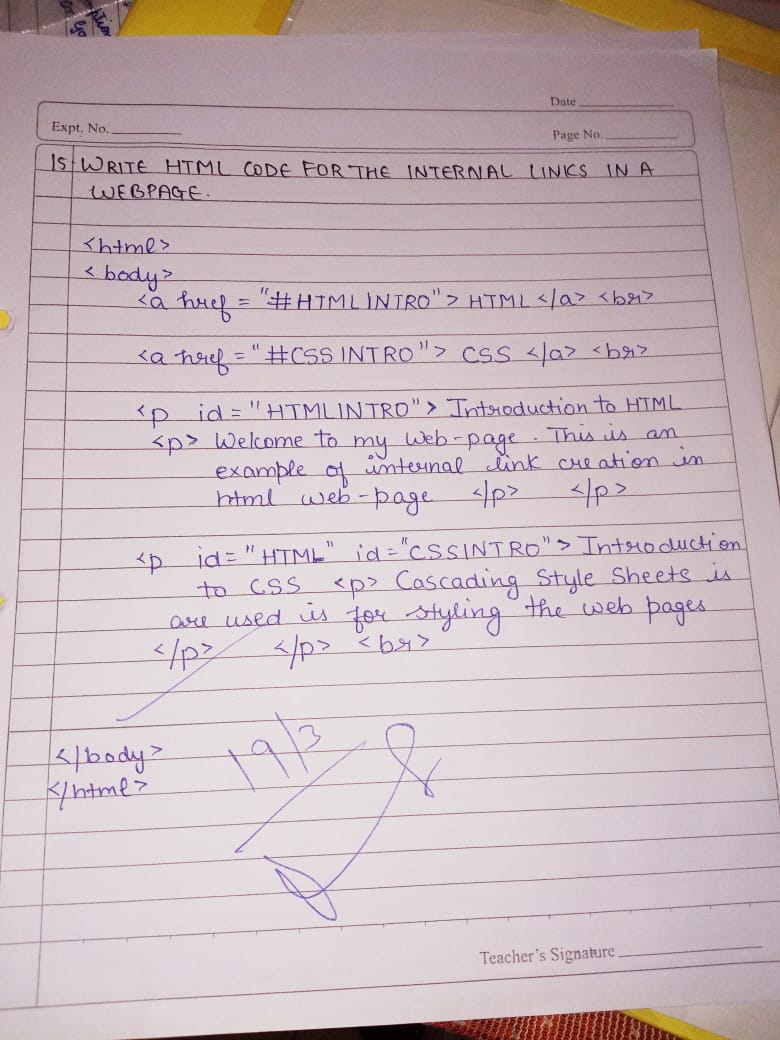 Date
Expt. No.
Page No.
15 WRITE HTML CODE FOR THE INTERNAL LINKS IN A
WEBPAGE.
<html>
<body>
<a href = "#HTMLINTRO"> HTML </a> <br>
<a href = "#CSSINTRO"> CSS </a> <br>
<p id = "HTMLINTRO"> Introduction to HTML
<p> Welcome to my web-page. This is an
example of internal link creation in
html web-page </p> </p>
<p id = "HTML" id = "CSSINTRO"> Introduction
to CSS <p> Cascading Style Sheets is
are used is for styling the web pages
</p> </p> <br>
19/3
</body>
</html>
Teacher's Signature